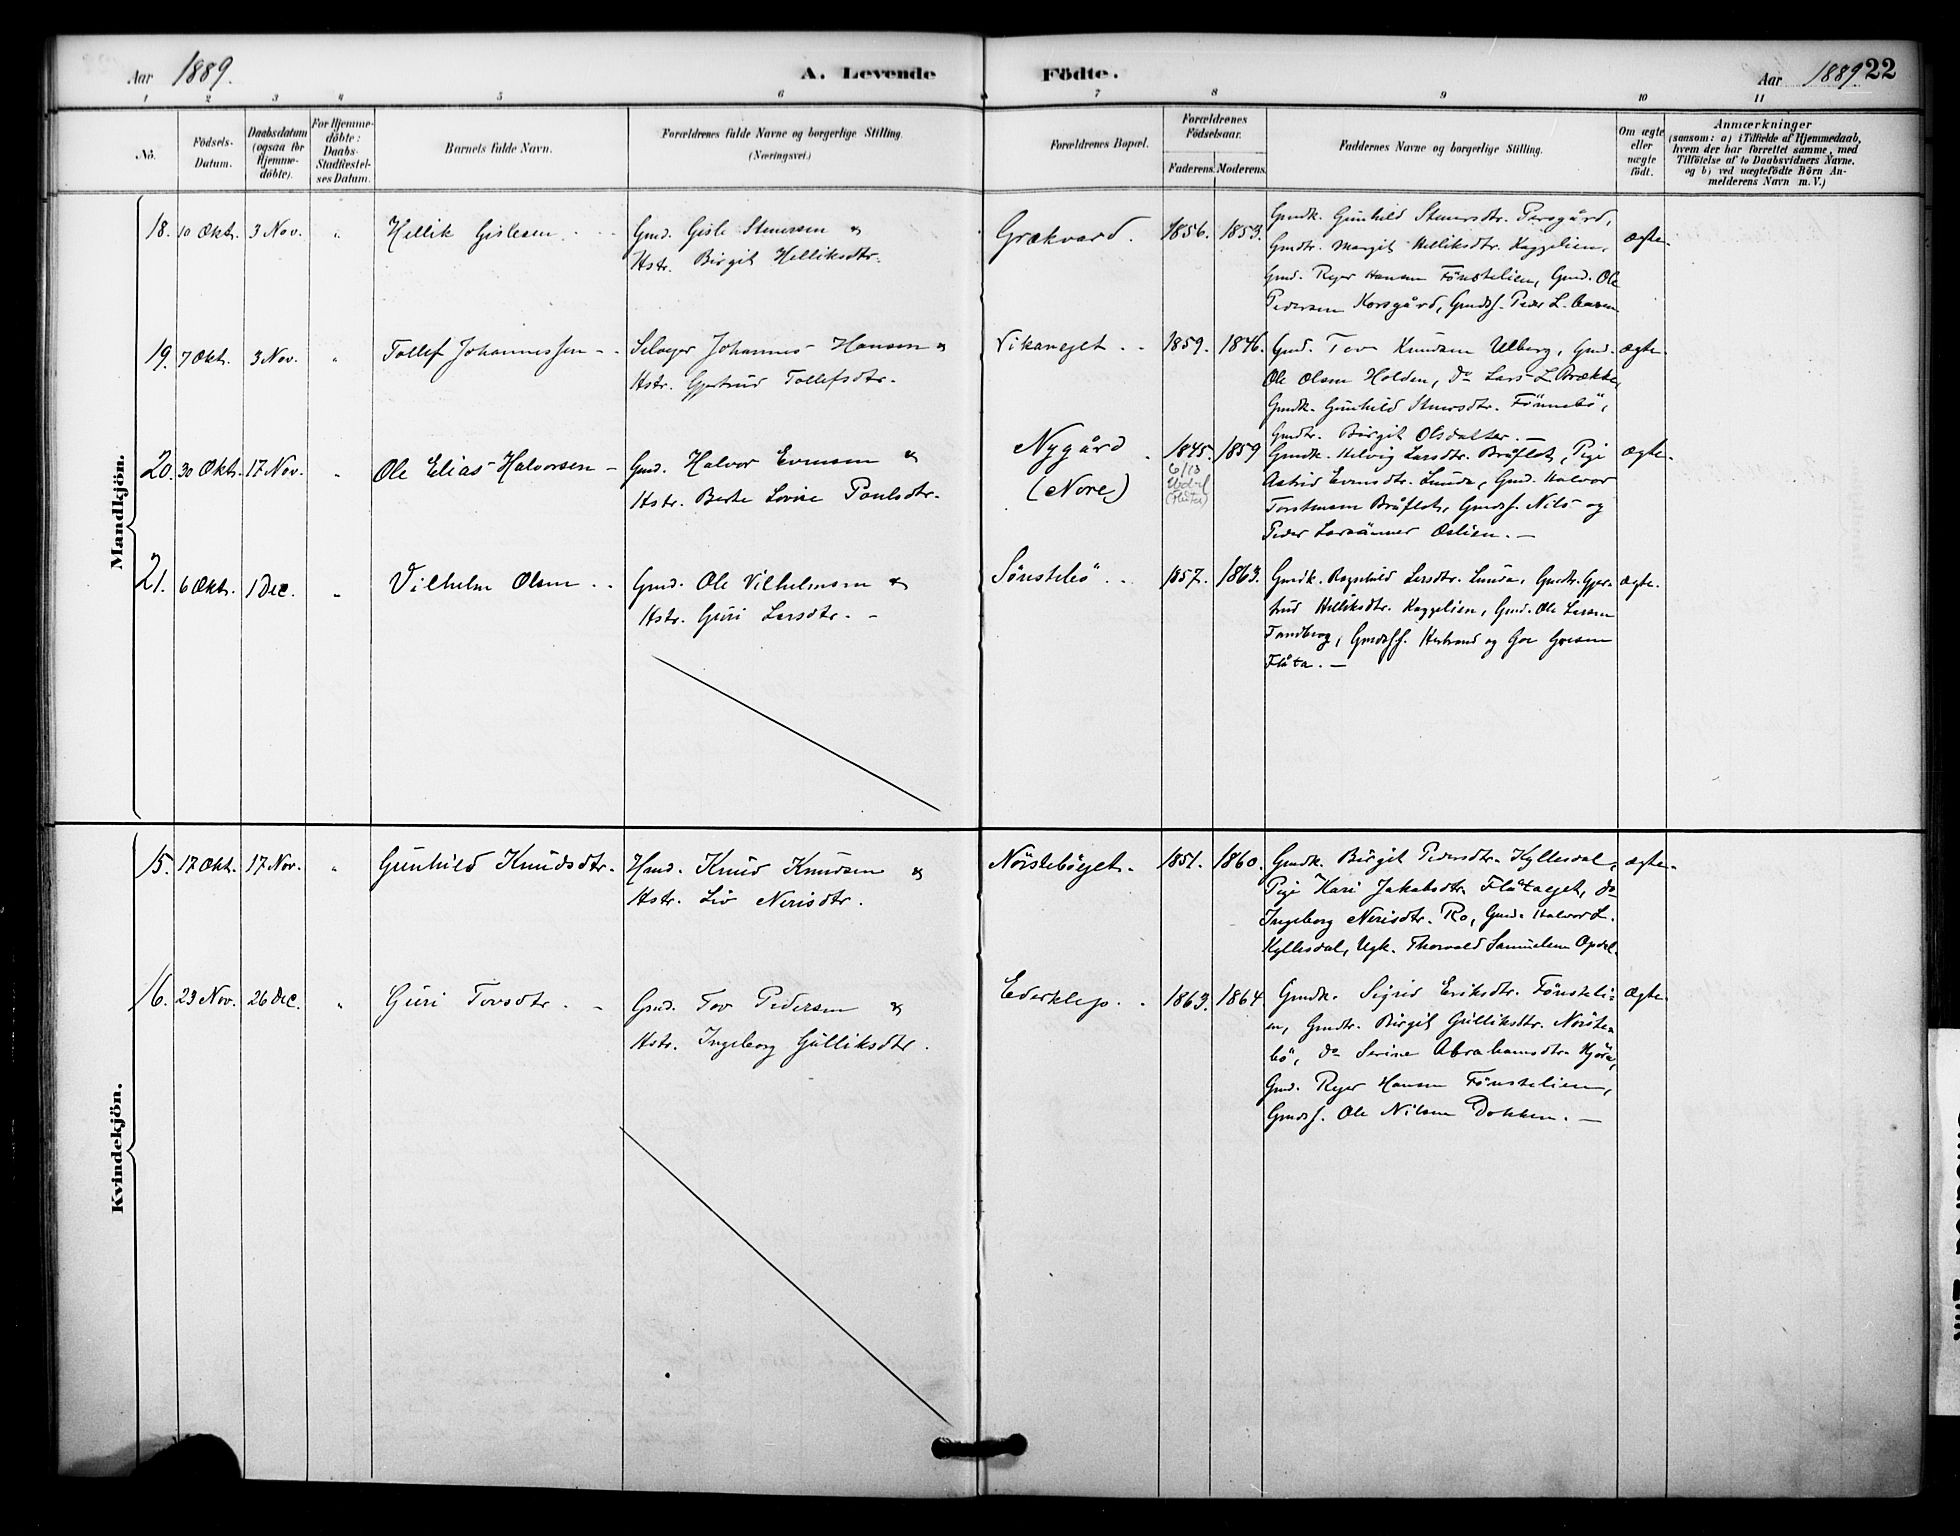 Aar 1889. A. Levende Födte. Aar 1889. 22
1 2 3 4 5 6 7 8 9 10 11
No. Födsels-Datum. Daabsdatum (ogsaa for Hjemme-döbte). For Hjemme-döbte: Daabs-Stadfæstel-ses Datum. Barnets fulde Navn. Forældrenes fulde Navne og borgerlige Stilling. (Næringsvei.) Forældrenes Bopæl. Forældrenes Födselsaar. Faderens. Moderens. Faddernes Navne og borgerlige Stilling. Om ægte eller uægte födt. Anmærkninger
(saasom: a) i Tilfælde af Hjemmedaab,
hvem der har forrettet samme, med
Tilföielse af to Daabsvidners Navne.
og b) ved uægtefödte Börn An-
melderens Navn m. V.)
Mandkjön.
18. 10 Okt. 3 Nov. " Hellik Gislesen. Gmd. Gisle Stenersen &
Hstr. Birgit Helliksdtr.
Grækvard. 1856. 1853.
Gmdk. Gunhild Stenersdtr. Persgård,
Gmdtr. Margit Helliksdtr. Kaggelien,
Gmd. Reyer Hansen Fönstelien, Gmd. Ole
Pedersen Korsgård, Gmdsf. Peder L.
ægte
19. 7 Okt. 3 Nov. " Tollef Johannessen - Selveyer Johannes Hansen &
Hstr. Gjertrud Tollefsdtr.
Vikaneget 1859. 1846.
Gmd. Tov Knudsen Ulberg, Gmd.
Ole Olsen Holden, do Lars L. Brække,
Gmdk. Gunhild Stenersdtr. Fönnebö,
Gmdtr. Birgit Olsdatter. -
ægte
20. 30 Okt. 17 Nov. " Ole Elias Halvorsen - Gmd. Halvor Evensen &
Hstr. Berte Lovise Paulsdtr.
Nygård
(Nore)
1845. 1859
6/13
Gmdk. Helvig Larsdtr. Bråflot, Pige
Astrid Evensdtr. Lunde, Gmd. Halvor
Torstensen Bråflot, Gmdsf. Nils og
Peder Larsönner Oslien. -
ægte
21. 6 Okt. 1 Dec. " Vilhelm Olsen Gmd. Ole Vilhelmsen &
Hstr. Guri Larsdtr. -
Sönstebö 1857. 1863.
Gmdk. Ragnhild Larsdtr. Lunde, Gmdtr. Gjer-
trud Helliksdtr. Kaggelien, Gmd. Ole Larsen
Tandberg, Gmdsff. Herbrand og Goe Goesen
Flåta. -
ægte
Kvindekjön.
15. 17 Okt. 17 Nov. " Gunhild Knudsdtr. Hmd. Knud Knudsen &
Hstr. Liv Nerisdtr.
Nörsteböeget 1851. 1860.
Gmdk. Birgit Pedersdtr. Kyllesdal,
Pige Kari Jakobsdtr. Flåtaeget, do
Ingeborg Nerisdtr. Ro, Gmd. Halvor L.
Kyllesdal, Ugk. Thorvald Samuelsen Opdal.
ægte
16. 23 Nov. 26 Dec. " Guri Tovsdtr. Gmd. Tov Pedersen &
Hstr. Ingeborg Gulliksdtr.
Ederklep 1863. 1864
Gmdk. Sigrid Eriksdtr. Fönsteli-
en, Gmdtr. Birgit Gulliksdtr. Nörste-
bö, do Serine Abrahamsdtr. Kjöra,
Gmd. Reyer Hansen Fönstelien,
Gmdsf. Ole Nilsen Dokken. -
ægte